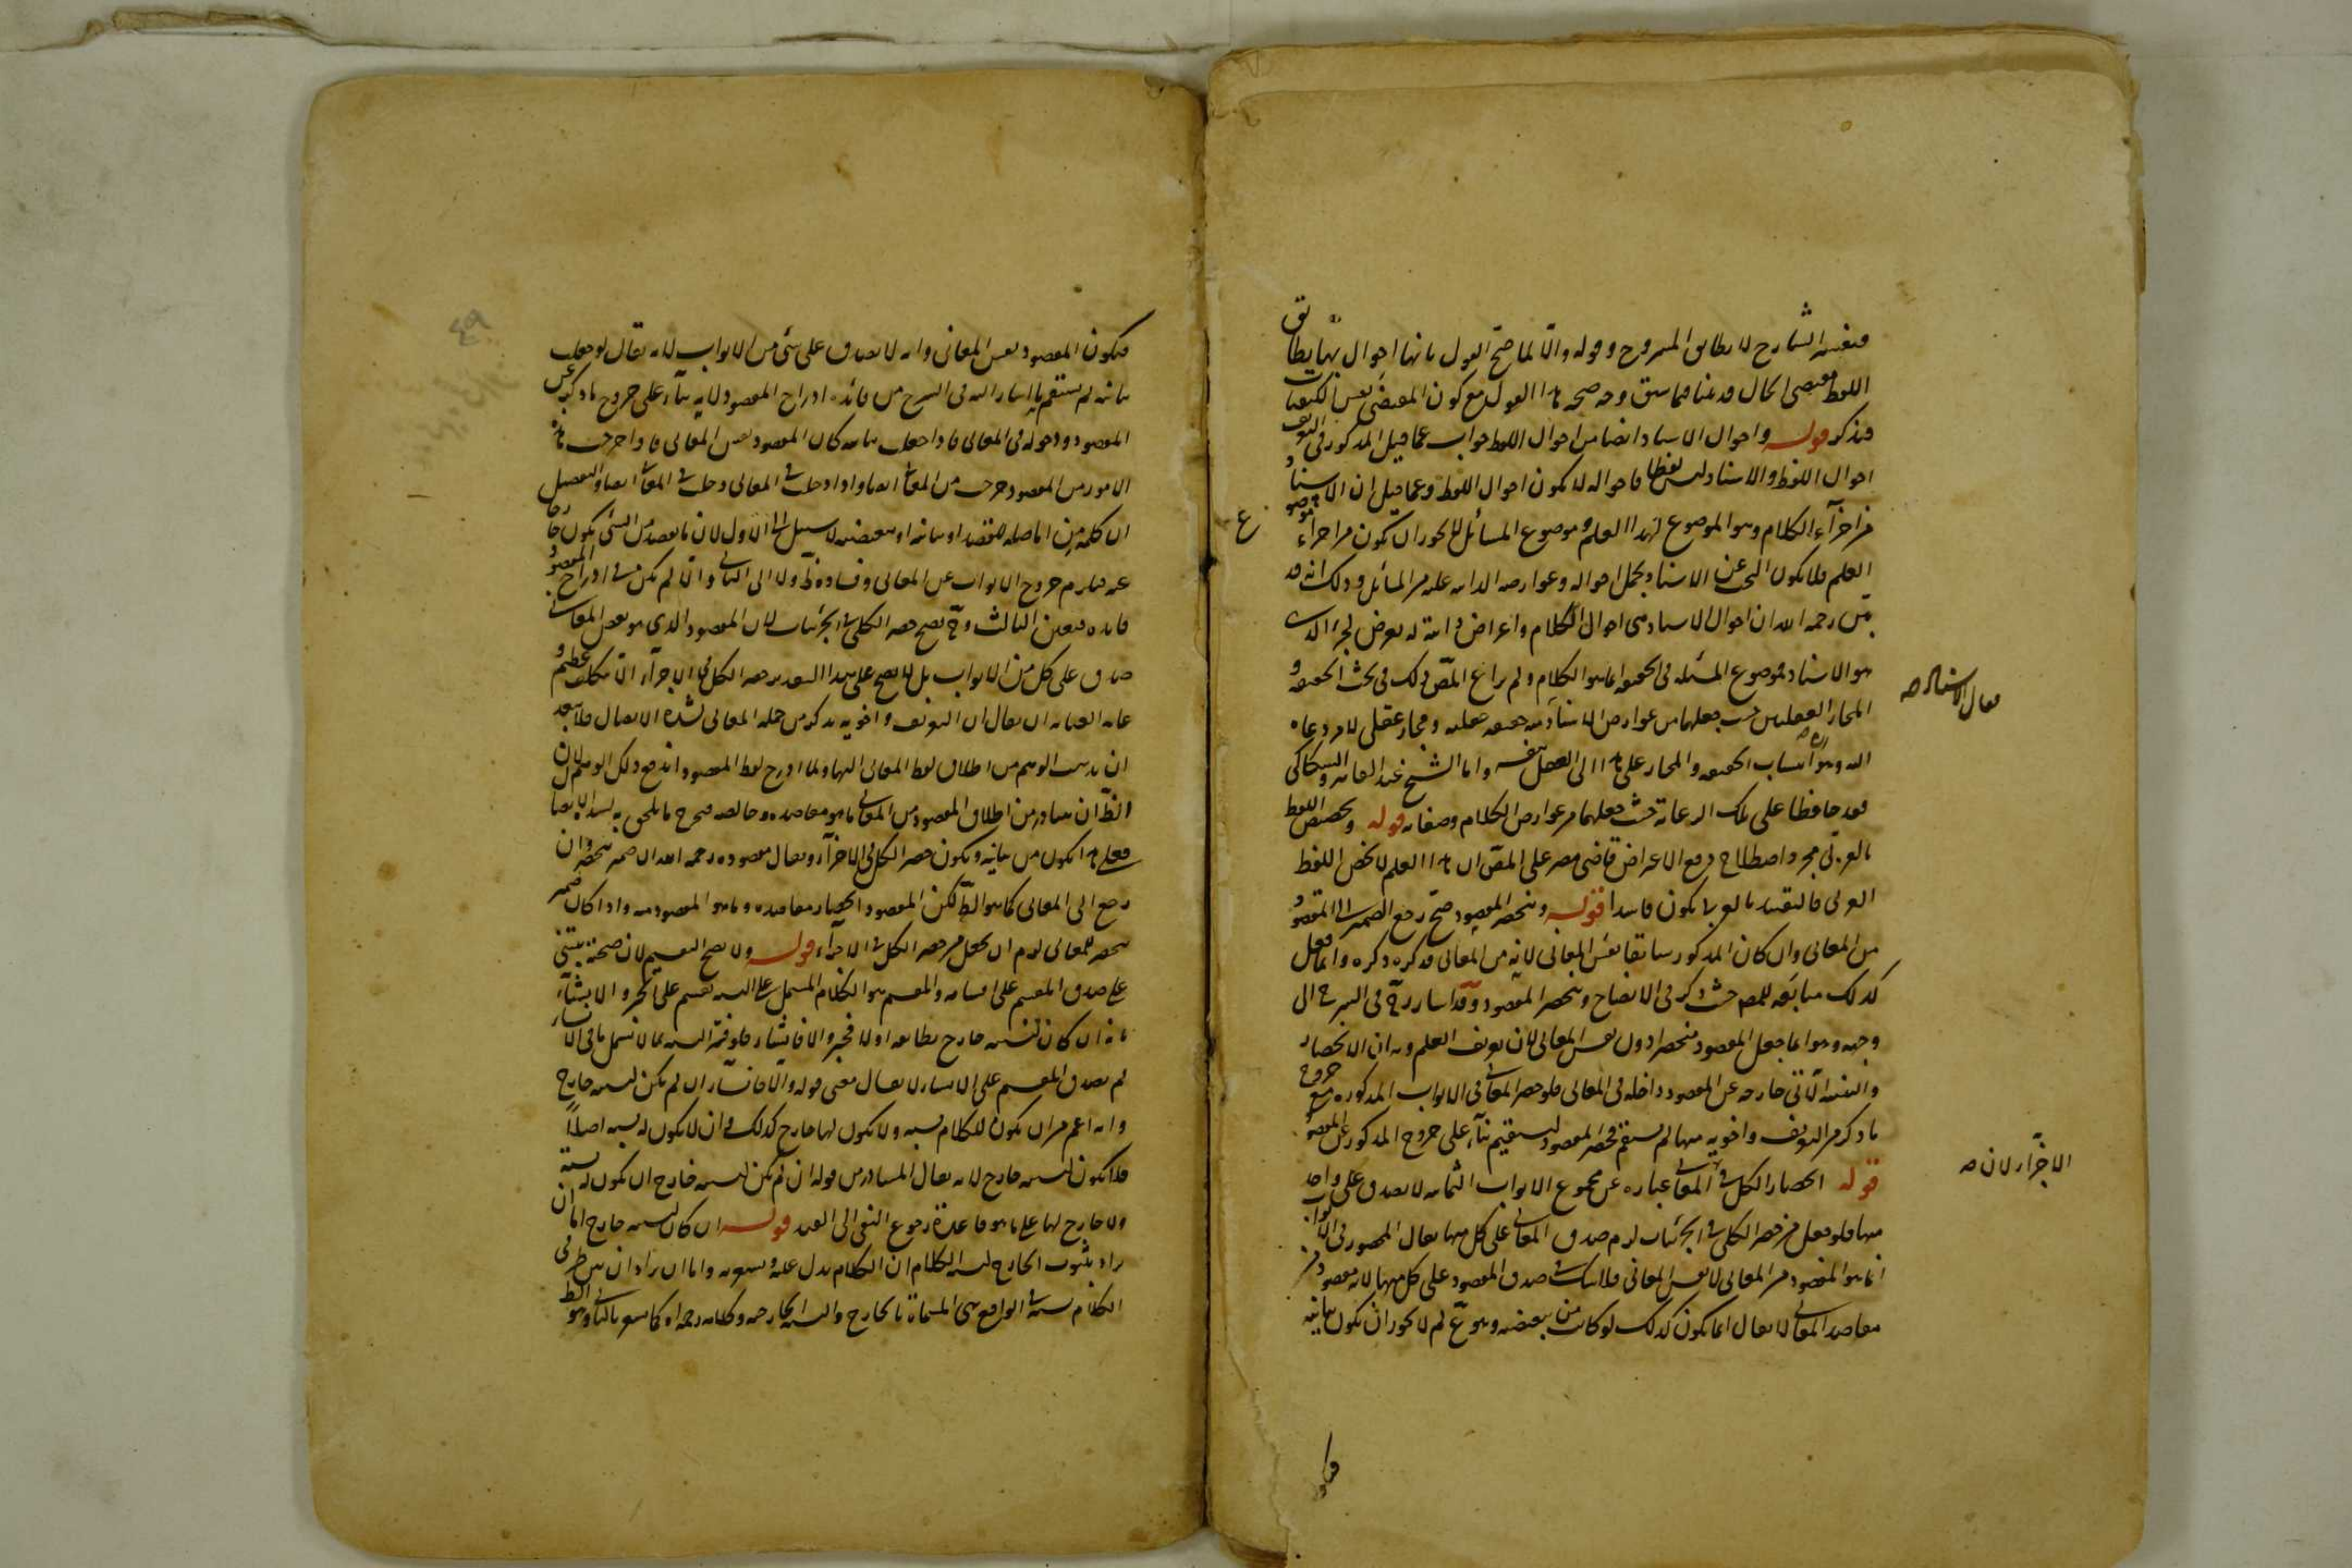 فتفسير الشارح لا يطابق المشروح وقوله والا لما صح القول بانها احوال بها يطابق
اللفظ مقتضى الحال قد بينا فيما سبق وجه صحة هذا القول مع كون المقتضى نفس الكيفيات
فتذكر قوله واحوال الاسناد ايضا من احوال اللفظ جواب عما قيل المذكور في التعريف
احوال اللفظ والاسناد ليس لفظا فاحواله لا تكون احوال اللفظ وعما قيل ان الاسناد
من اجزاء الكلام وهو الموضوع لهذا العلم وموضوع المسائل لا يجوز ان يكون من اجزاء موضوع
العلم فلا يكون البحث عن الاسناد وحمل احواله وعوارضه الذاتية عليه من المسائل وذلك انه قد
رحمه الله ان احوال الاسناد هي احوال الكلام واعراض ذاتية له بعرض لجزئه الذي
هو الاسناد فموضوع المسئلة في الحقيقة انما هو الكلام ولم يراع المص ذلك في بحث الحقيقة و
المجاز العقليين حيث جعلهما من عوارض الاسناد منه حقيقة عقلية ومجاز عقلي لامر دعاه
اليه وهو انتساب الحقيقة والمجاز على هذا الى العقل بنفسه واما الشيخ عبد القاهر والسكاكي
فقد حافظا على تلك الرعاية حيث جعلهما من عوارض الكلام وصفاته قوله وتخصيص اللفظ
بالعربي مجرد اصطلاح دفع الاعتراض قاضي مصر على المص ان هذا العلم لا يخص اللفظ
العربي فالتقييد بالعربي يكون فاسدا قوله وينحصر المقصود صح رجع الضمير الى المقصود
من المعاني وان كان المذكور سابقا نفس المعاني لانه من المعاني فذكره ذكره وانما فعل
كذلك متابعة للمص حيث ذكر في الايضاح وينحصر المقصود وقد اشار في الشرح الى
وجهه وهو انما جعل المقصود منحصرا دون نفس المعاني لان تعريف العلم وبيان الانحصار
والتنبيه الآتي خارجة عن المقصود داخلة في المعاني فلو حصر المعاني في الابواب المذكورة مع خروج
ما ذكر من التعريف واخويه منها لم يستقم فحصر المقصود ليستقيم بناء على خروج المذكور عن المقصود
قوله انحصار الكل في المعاني عبارة عن مجموع الابواب الثمانية لا يصدق على واحد
منها فلو جعل من حصر الكلي في الجزئيات لزم صدق المعاني على كل منها يقال المحصور في الابواب
انما هو المقصود من المعاني لا نفس المعاني فلا شك في صدق المقصود على كل منها لانه مقصود من
مقاصد المعاني لا يقال انما يكون كذلك لو كانت من تبعيضية وهو مم لم لا يجوز ان يكون بيانية
يقال الاسناد صح
الاجزاء لان صح
فيكون المقصود نفس المعاني وانه لا يصدق على شئ من الابواب لانه يقال لو جعلت
بيانية لم يستقم ما اشار اليه في الشرح من فائدة ادراج المقصود لانه بناء على خروج ما ذكر عن
المقصود ودخوله في المعاني فاذا جعلت بيانية كان المقصود نفس المعاني فاذا خرجت هذه
الامور من المقصود خرجت من المعاني ايضا واذا دخلت في المعاني دخلت في المقصود ايضا والتفصيل
ان كلمة من اما صلة للقصد او بيانية او تبعيضية لا سبيل الى الاول لان ما يقصد من الشئ يكون خارجا
عنه فيلزم خروج الابواب عن المعاني وفساده ظ ولا الى الثاني والا لم يكن في ادراج المقصود
فائدة فتعين الثالث وح يصح حصر الكلي في الجزئيات لان المقصود الذي هو بعض المعاني
صادق على كل من الابواب بل لا يصح على هذا التقدير حصر الكل في الاجزاء الا بتكلف عظيم و
غاية العناية ان يقال ان التعريف واخويه يذكر من جملة المعاني لشدة الاتصال فلا يبعد
ان يذهب الوهم من اطلاق لفظ المعاني اليها ولما ادرج لفظ المقصود اندفع ذلك الوهم لان
الظ ان يتبادر من اطلاق المقصود من المعاني ما هو مقاصده وخالصه فيخرج ما يلحق به لشدة الاتصال
فعلى هذا يكون من بيانية ويكون حصر الكل في الاجزاء ويقال مقصوده رحمه الله ان ضمير ينحصر وان
رجع الى المعاني كما هو الظ لكن المقصود انحصار مقاصده وما هو المقصود منه واذا كان ضمير
ينحصر للمعاني لزم ان يجعل من حصر الكل في الاجزاء قوله ولا يصح التقسيم لان صحته يبتني
على صدق المقسم على اقسامه والمقسم هو الكلام المشتمل على النسبة تقسيم على الخبر والانشاء
بانه ان كان لنسبته خارج تطابقه او لا فخبر والا فانشاء فلو فسر النسبة بما لا يشمل ما في الانشاء
لم يصدق المقسم على الانشاء لا يقال معنى قوله والا فانشاء ان لم يكن لنسبته خارج
وانه اعم من ان يكون للكلام نسبة ولا يكون لها خارج كذلك وان لا يكون له نسبة اصلا
فلا يكون لنسبته خارج لانه يقال المتبادر من قوله ان لم يكن لنسبته خارج ان يكون له نسبة
ولا خارج لها على ما هو قاعدة رجوع النفي الى القيد قوله ان كان لنسبته خارج اما ان
يراد بثبوت الخارج لنسبة الكلام ان الكلام يدل عليه ويشعر به واما ان يراد ان بين طرفي
الكلام نسبة في الواقع هي المسماة بالخارج والنسبة الخارجية وكلامه رحمه الله كما يشعر بالثاني وهو الظ